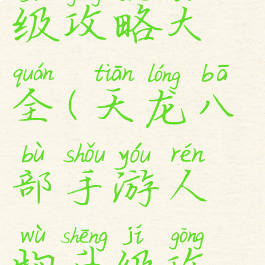 级攻略大
quán tiān lóng bā
全(天龙八
bù shǒu yóu rén
部手游人
wù shēng jí gōng
物升级攻